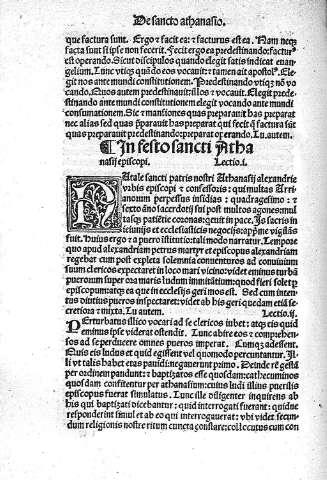 De sancto athanasio.
que factura sunt. Ergo ⁊ facit ea: ⁊ facturus est ea. Nam neqꝫ
facta sunt si ipse non fecerit. Fecit ergo ea predestinando: facturꝰ
est operando. Sicut discipulos quando elegit satis indicat euan
gelium. Tunc vtiqꝫ quādo eos vocauit: ⁊ tamen ait apostolꝰ. Ele
git nos ante mundi constitutionem. Elegit predestinando: nō vo
cando. Quos autem predestinauit: illos ⁊ vocauit. Elegit predesti
nando ante mundi constitutionem elegit vocando ante mundi
consummationem. Sic ⁊ mansiones quas preparauit ⁊ preparat
nec alias sed quas preparauit has preparat qui fecit q̄ factura sūt
quas preparauit predestinando: preparat operando. Tu autem.
¶ In festo sancti Atha
nasij episcopi. Lectio.i.
Natale sancti patris nostri Athanasij alexandrie
vrbis episcopi ⁊ confessoris: qui multas Arri
anorum perpessus insidias: quadragesimo: ⁊
sexto āno sacerdotij sui post multos agones: mul
tasqꝫ patiētie coronas: qeuit in pace. Is sacris in
iciumijs et ecclesiasticis negocijs: apprime vigilās
fuit. Huius ergo a puero īstitutio: tali modo narratur. Tempore
quo apud alexandriam petrus martyr et episcopus alexandriam
regebat cum post expleta solemnia conuenturos ad conuiuium
suum clericos expectaret in loco mari vicino: videt eminus turbā
puerorum super ora maris ludum immitatium: quod fieri solet p
episcopum: atqꝫ ea que in ecclesijs geri mos est. Sed cum inten
tus diutius pueros inspectaret: videt ab his geri quedam etiā se
cretiora: mixta. Tu autem. Lectio.ij.
PErturbatus illico vocari ad se clericos iubet: atqꝫ eis quid
eminus ipse viderat ostendit. Tunc abire eos ⁊ comprehen
sos ad se perducere omnes pueros imperat. Cumqꝫ adessent.
Quis eis ludus et quid egissent vel quomodo percunctantur. Il
li vt talis habet etas pauidi: negauerunt primo. Deinde rē gestā
per ordinem pandunt: ⁊ baptizatos esse quosdam: cathecuminos
quodam confitentur per athanasium: cuius ludi illius puerilis
episcopus fuerat simulatus. Tunc ille diligenter inquirens ab
his qui baptizati dicebantur: quid interrogati fuerant: quidue
responderint simul et ab eo qui interrogauerat: videt secun
dum religionis nostre ritum cuncta constare: collocutus cum con